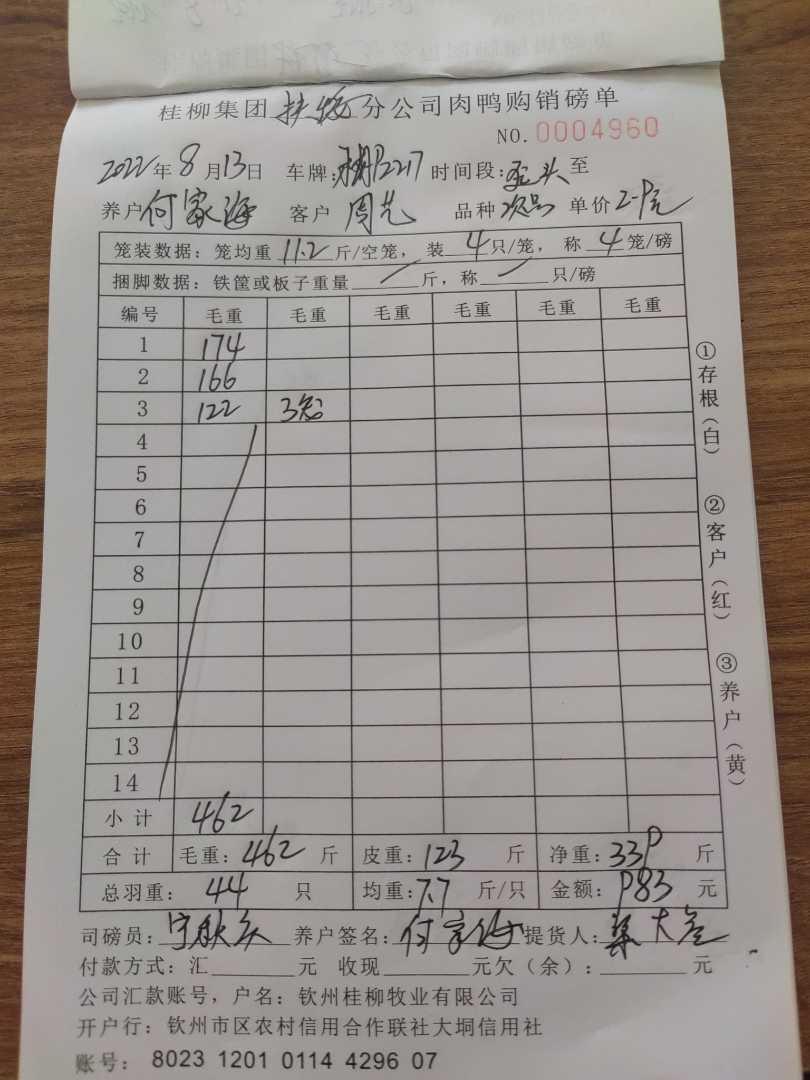 桂柳集团 扶绥 分公司肉鸭购销磅单
NO.0004960
2022年8月13日 车牌: 时间段: 头 至
养户 何家海 客户 周艺 品种 次品 单价 2.9元
笼装数据：笼均重 11.2 斤/空笼，装 4 只/笼，称 4 笼/磅
捆脚数据：铁筐或板子重量 / 斤，称 / 只/磅
编号 毛重 毛重 毛重 毛重 毛重 毛重
1 174
2 166
3 122 3笼
4
5
6
7
8
9
10
11
12
13
14
小计 462
合计 毛重：462 斤 皮重：123 斤 净重：339 斤
总羽重： 44 只 均重：7.7 斤/只 金额：983 元
司磅员： 养户签名： 何家海 提货人：
付款方式：汇 元 收现 元欠（余）： 元
公司汇款账号，户名：钦州桂柳牧业有限公司
开户行：钦州市区农村信用合作联社大垌信用社
账号： 8023 1201 0114 4296 07
①存根（白） ②客户（红） ③养户（黄）